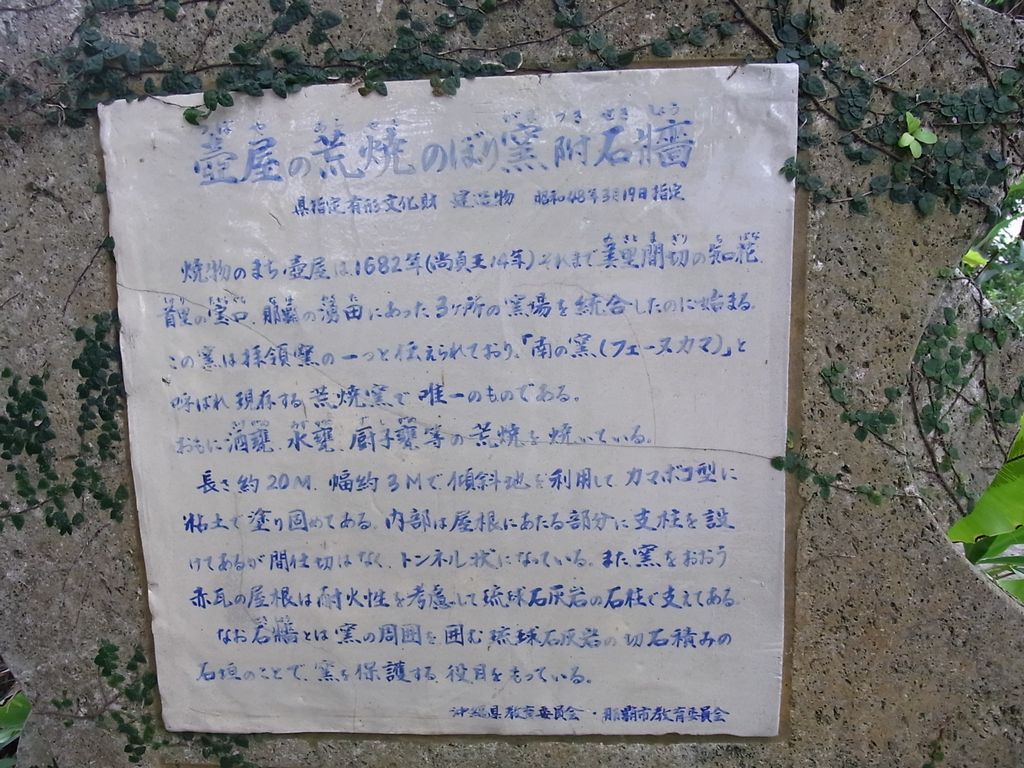 壺屋の荒焼のぼり窯附石牆
県指定有形文化財 建造物 昭和48年3月19日指定
焼物のまち壺屋は1682年(尚貞王14年)それまで美里間切の知花、
首里の宝口、那覇の湧田にあった3ヶ所の窯場を統合したのに始まる。
この窯は拝領窯の一つと伝えられており、「南の窯(フェーヌカマ)」と
呼ばれ現存する荒焼窯で唯一のものである。
おもに酒甕、水甕、厨子甕等の荒焼を焼いている。
長さ約20M、幅約3Mで傾斜地を利用してカマボコ型に
粘土で塗り固めてある。内部は屋根にあたる部分に支柱を設
けてあるが間仕切はなく、トンネル状になっている。また窯をおおう
赤瓦の屋根は耐火性を考慮して琉球石灰岩の石柱で支えてある。
なお石牆とは窯の周囲を囲む琉球石灰岩の切石積みの
石垣のことで、窯を保護する役目をもっている。
沖縄県教育委員会・那覇市教育委員会